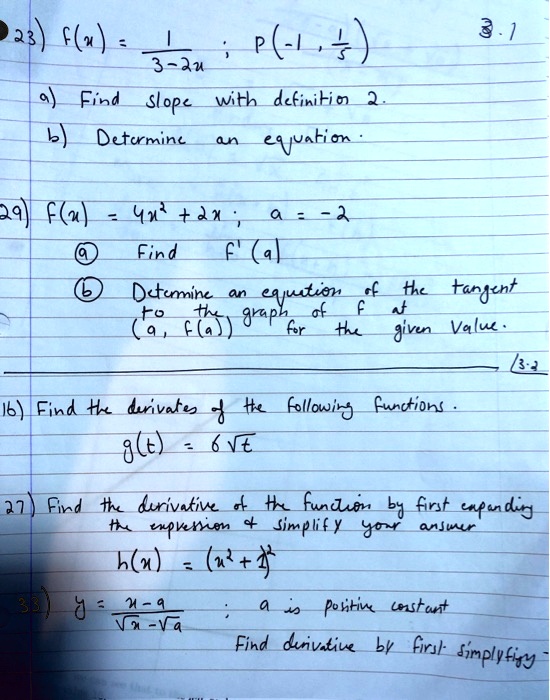 23) f(x) = 1/(3-2x) ; P(-1, 1/5) 3.1
a) Find slope with definition 2.
b) Determine an equation.
29) f(x) = 4x² + 2x ; a = -2
(a) Find f'(a)
(b) Determine an equation of the tangent
to the graph of f at
(a, f(a)) for the given value.
3.2
16) Find the derivates of the following functions.
g(t) = 6√t
27) Find the derivative of the function by first expanding
the expression & simplify your answer
h(x) = (x² + 1)²
38) y = (x-a)/(√x-√a) ; a is positive constant
Find derivative by first simplyfigy